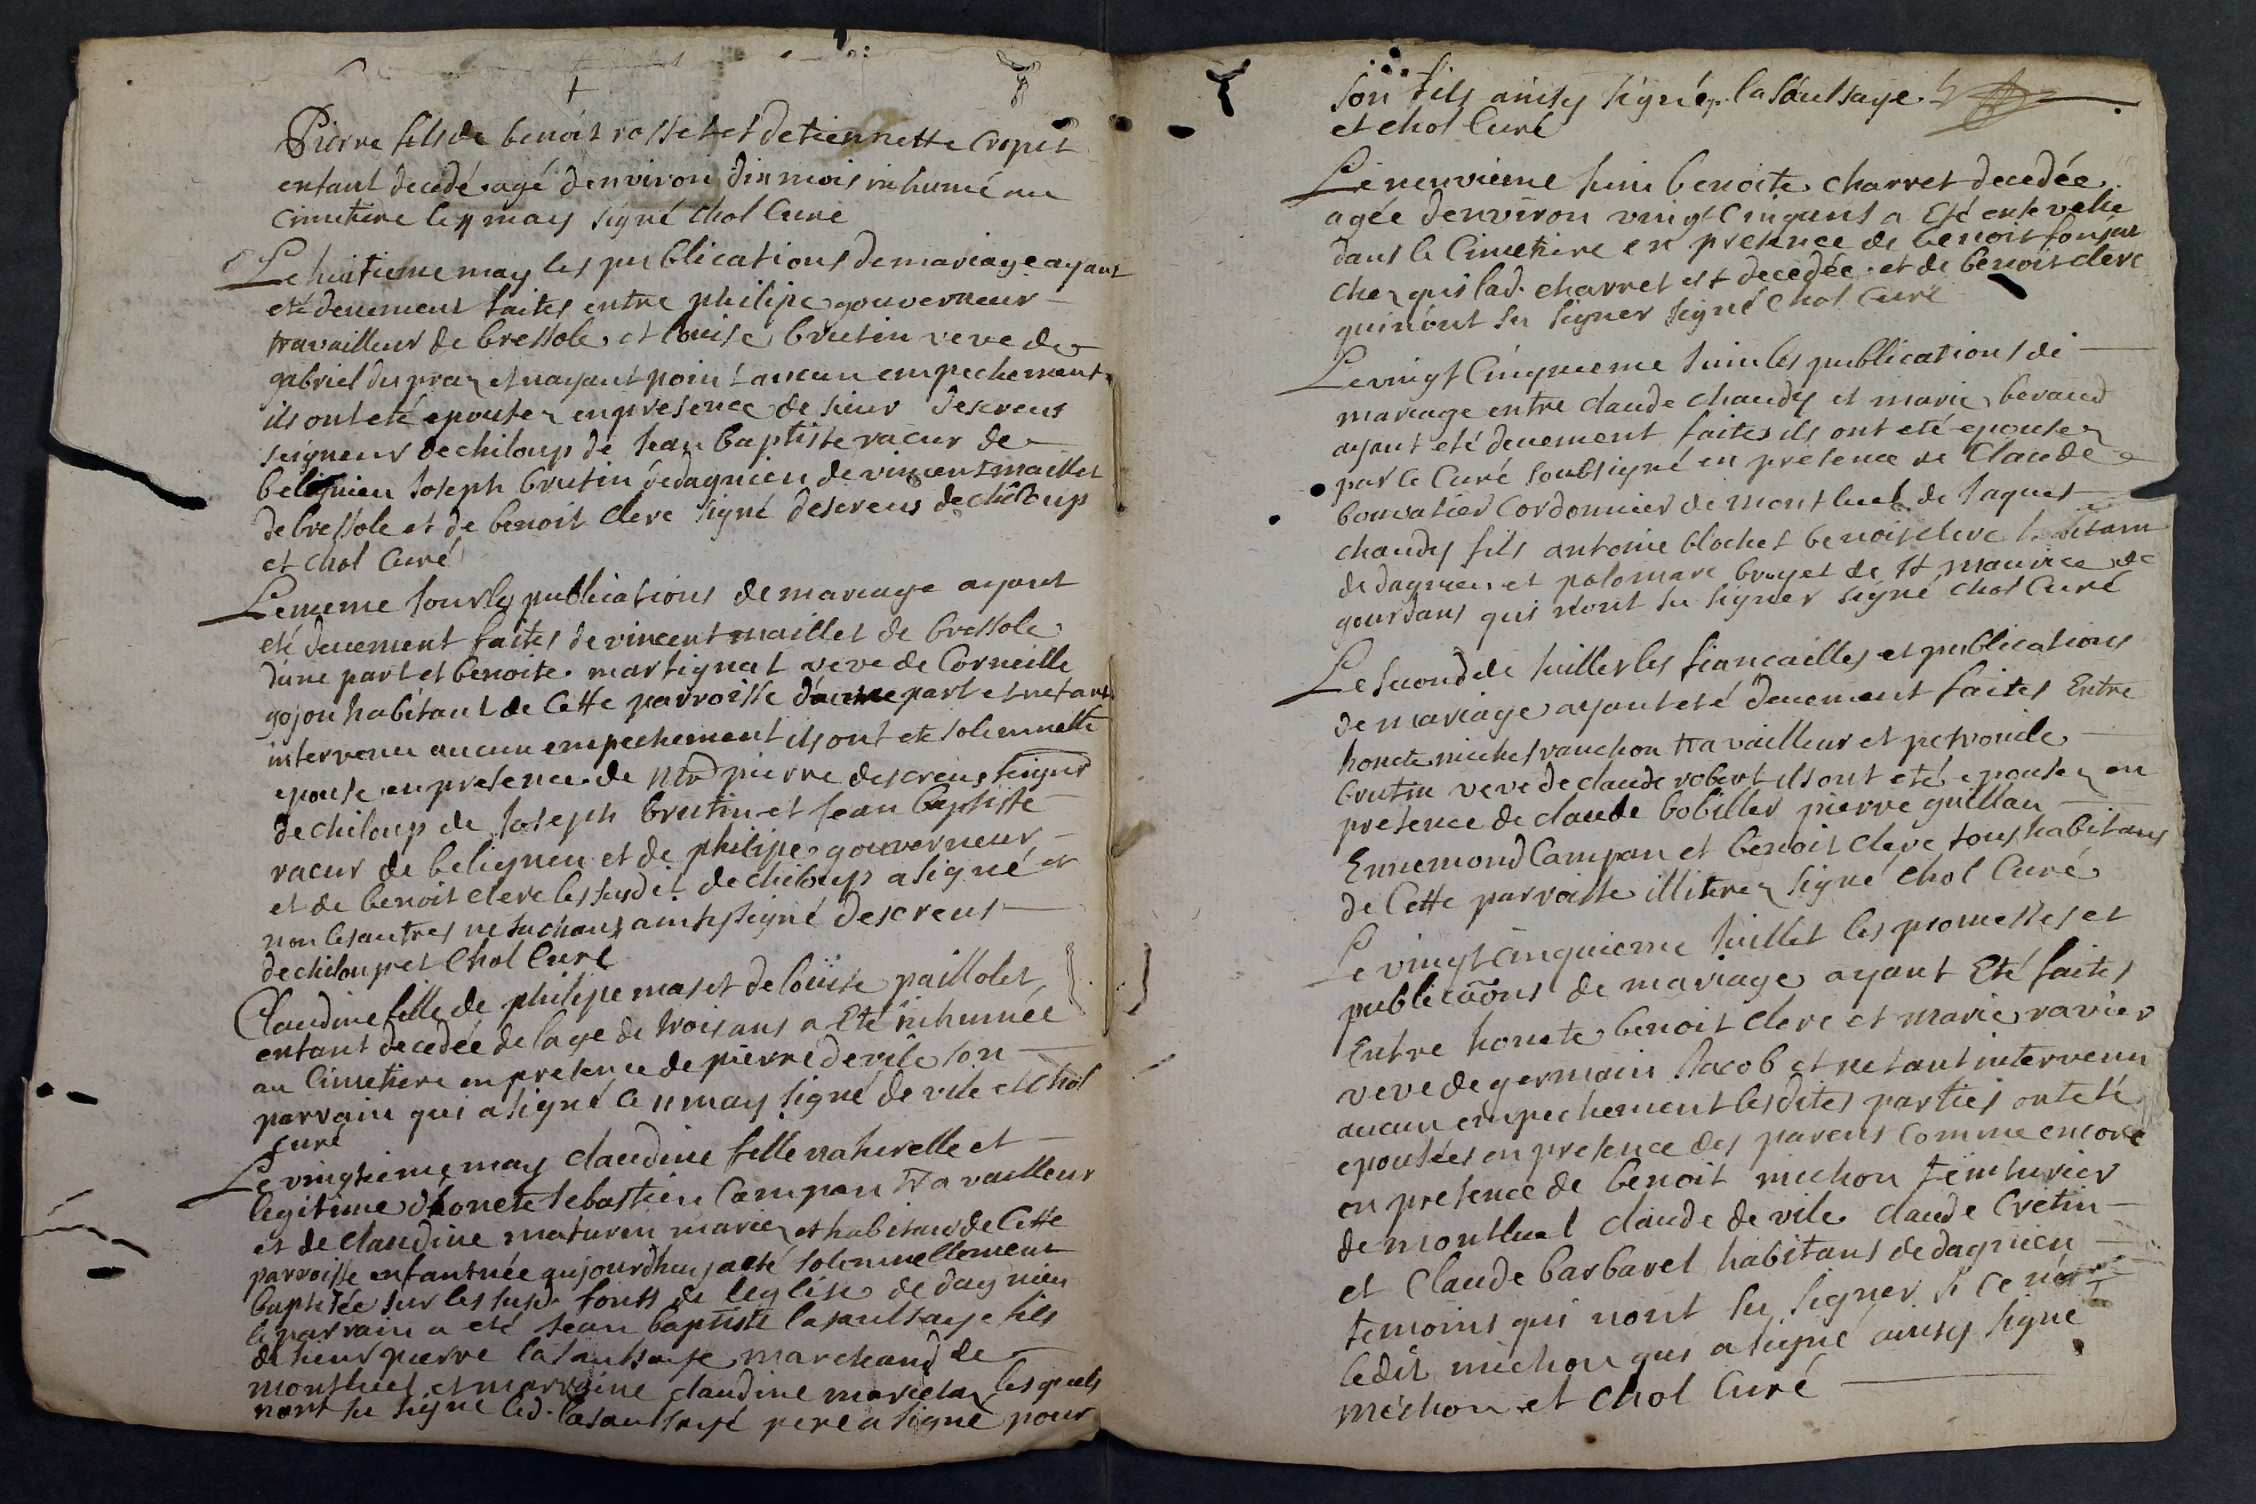 Pierre fils de benoit rosset et detiennette cropet
enfant decedé agé denviron dix mois inhumé au
cimetiere le may signé Chol Curé
Le huitieme may les publications de mariage ayant
eté deuement faites entre philipe gouverneur
travailleur de bressole et louise brutin veve de
gabriel du praz et nayant point aucun empechement
ils ont eté epousez en presence de sieur descreus
seigneur de chiloup de Jean baptiste racur de
belignieu Joseph brutin de dagnieu de vincent maillet
de bressole et de benoit clerc signé descreus de chiloup
et Chol Curé
Le meme Jour les publications de mariage ayant
eté deuement faites de vincent maillet de bressole
dune part et benoite martignat veve de Corneille
gojon habitant de Cette parroisse dautre part et netant
intervenu aucun empechement ils ont eté solemnelle
epouse en presence de pierre descreus seignr
de chiloup de Joseph brutin et Jean baptiste
racur de belignieu et de philipe gouverneur
et de benoit clerc les susdit de chiloup a signé et
non les autres ne sachant ainsy signé descreus
de chiloup et Chol Curé
Claudine fille de philipe maset de louise paillolet
enfant decedée de lage de trois ans a Eté inhumée
au Cimetiere en presence de pierre de vile son
parrain qui a signé le 11 may signé de vile et Chol
Curé
Le vingtieme may claudine fille naturelle et
legitime dhonete sebastien Campan travailleur
et de claudine maturin mariez et habitans de Cette
parroisse enfant née aujourdhuy a eté solemnellement
baptisée sur les susd. fonts de leglise de dagnieu
le parrain a eté Jean baptiste lasaulsaye fils
de sieur pierre lasaulsaye marchand de
montluel et marraine claudine lesquels
nont su signé led. lasaulsaye pere a signé pour
son fils ainsy signé lasaulsaye
et Chol Curé
Le neuvieme Juin benoite charvet decedée
agée denviron vingt Cinq ans a Eté ensevelie
dans le Cimetiere en presence de benoit
chez qui lad. charvet est decedée et de benoit clerc
qui nont su signer signé Chol Curé
Le vingt Cinquieme Juin les publications de
mariage entre claude chaudy et marie beraud
ayant eté deuement faites ils ont eté epousez
par le Curé soubsigné en presence de Claude
bouvatier Cordonnier de montluel de Jaques
chaudy fils antoine blochet benoit clerc habitans
de dagnieu et palomare bruyet de st maurice de
gourdans qui nont su signer signé Chol Curé
Le second de Juillet les fiancailles et publications
de mariage ayant eté deuement faites Entre
honete michel vauchon travailleur et petronile
brutin veve de claude robert ils ont eté epousez en
presence de claude bobillet pierre guillau
Ennemond Campan et benoit clerc tous habitans
de Cette parroisse illiterez signé Chol Curé
Le vingt cinquieme Juillet les promesses et
publicaõns de mariage ayant Eté faites
Entre honete benoit clerc et marie ravier
veve de germain Jacob et netant intervenu
aucun empechement lesdites parties ont eté
epousées en presence des parens Comme encore
en presence de benoit michon teinturier
de montluel claude de vile claude Cretin
et Claude barbaret habitans de dagnieu
temoins qui nont su signer si ce nest
ledit michon qui a signé ainsy signé
michon et Chol Curé